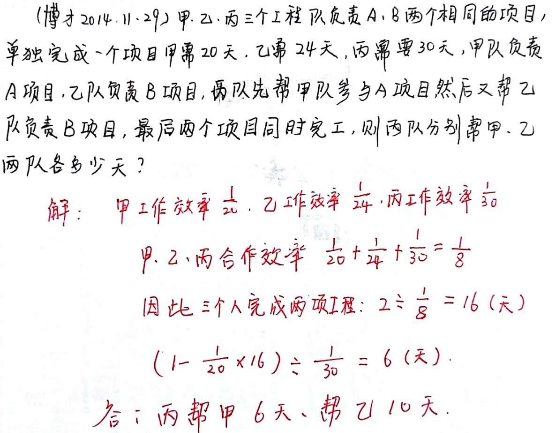 (博才2014.11.29)甲.乙.丙三个工程队负责A、B两个相同的项目,
单独完成一个项目甲需20天.乙需24天,丙需要30天,甲队负责
A项目,乙队负责B项目,丙队先帮甲队参与A项目然后又帮乙
队负责B项目,最后两个项目同时完工,则丙队分别帮甲、乙
两队各多少天?
解: 甲工作效率 1/20 . 乙工作效率 1/24 .丙工作效率 1/30
甲.乙.丙合作效率 1/20+1/24+1/30=1/8
因此三个人完成两项工程: 2÷1/8=16(天)
(1-1/20×16)÷1/30=6(天).
答:丙帮甲6天、帮乙10天.